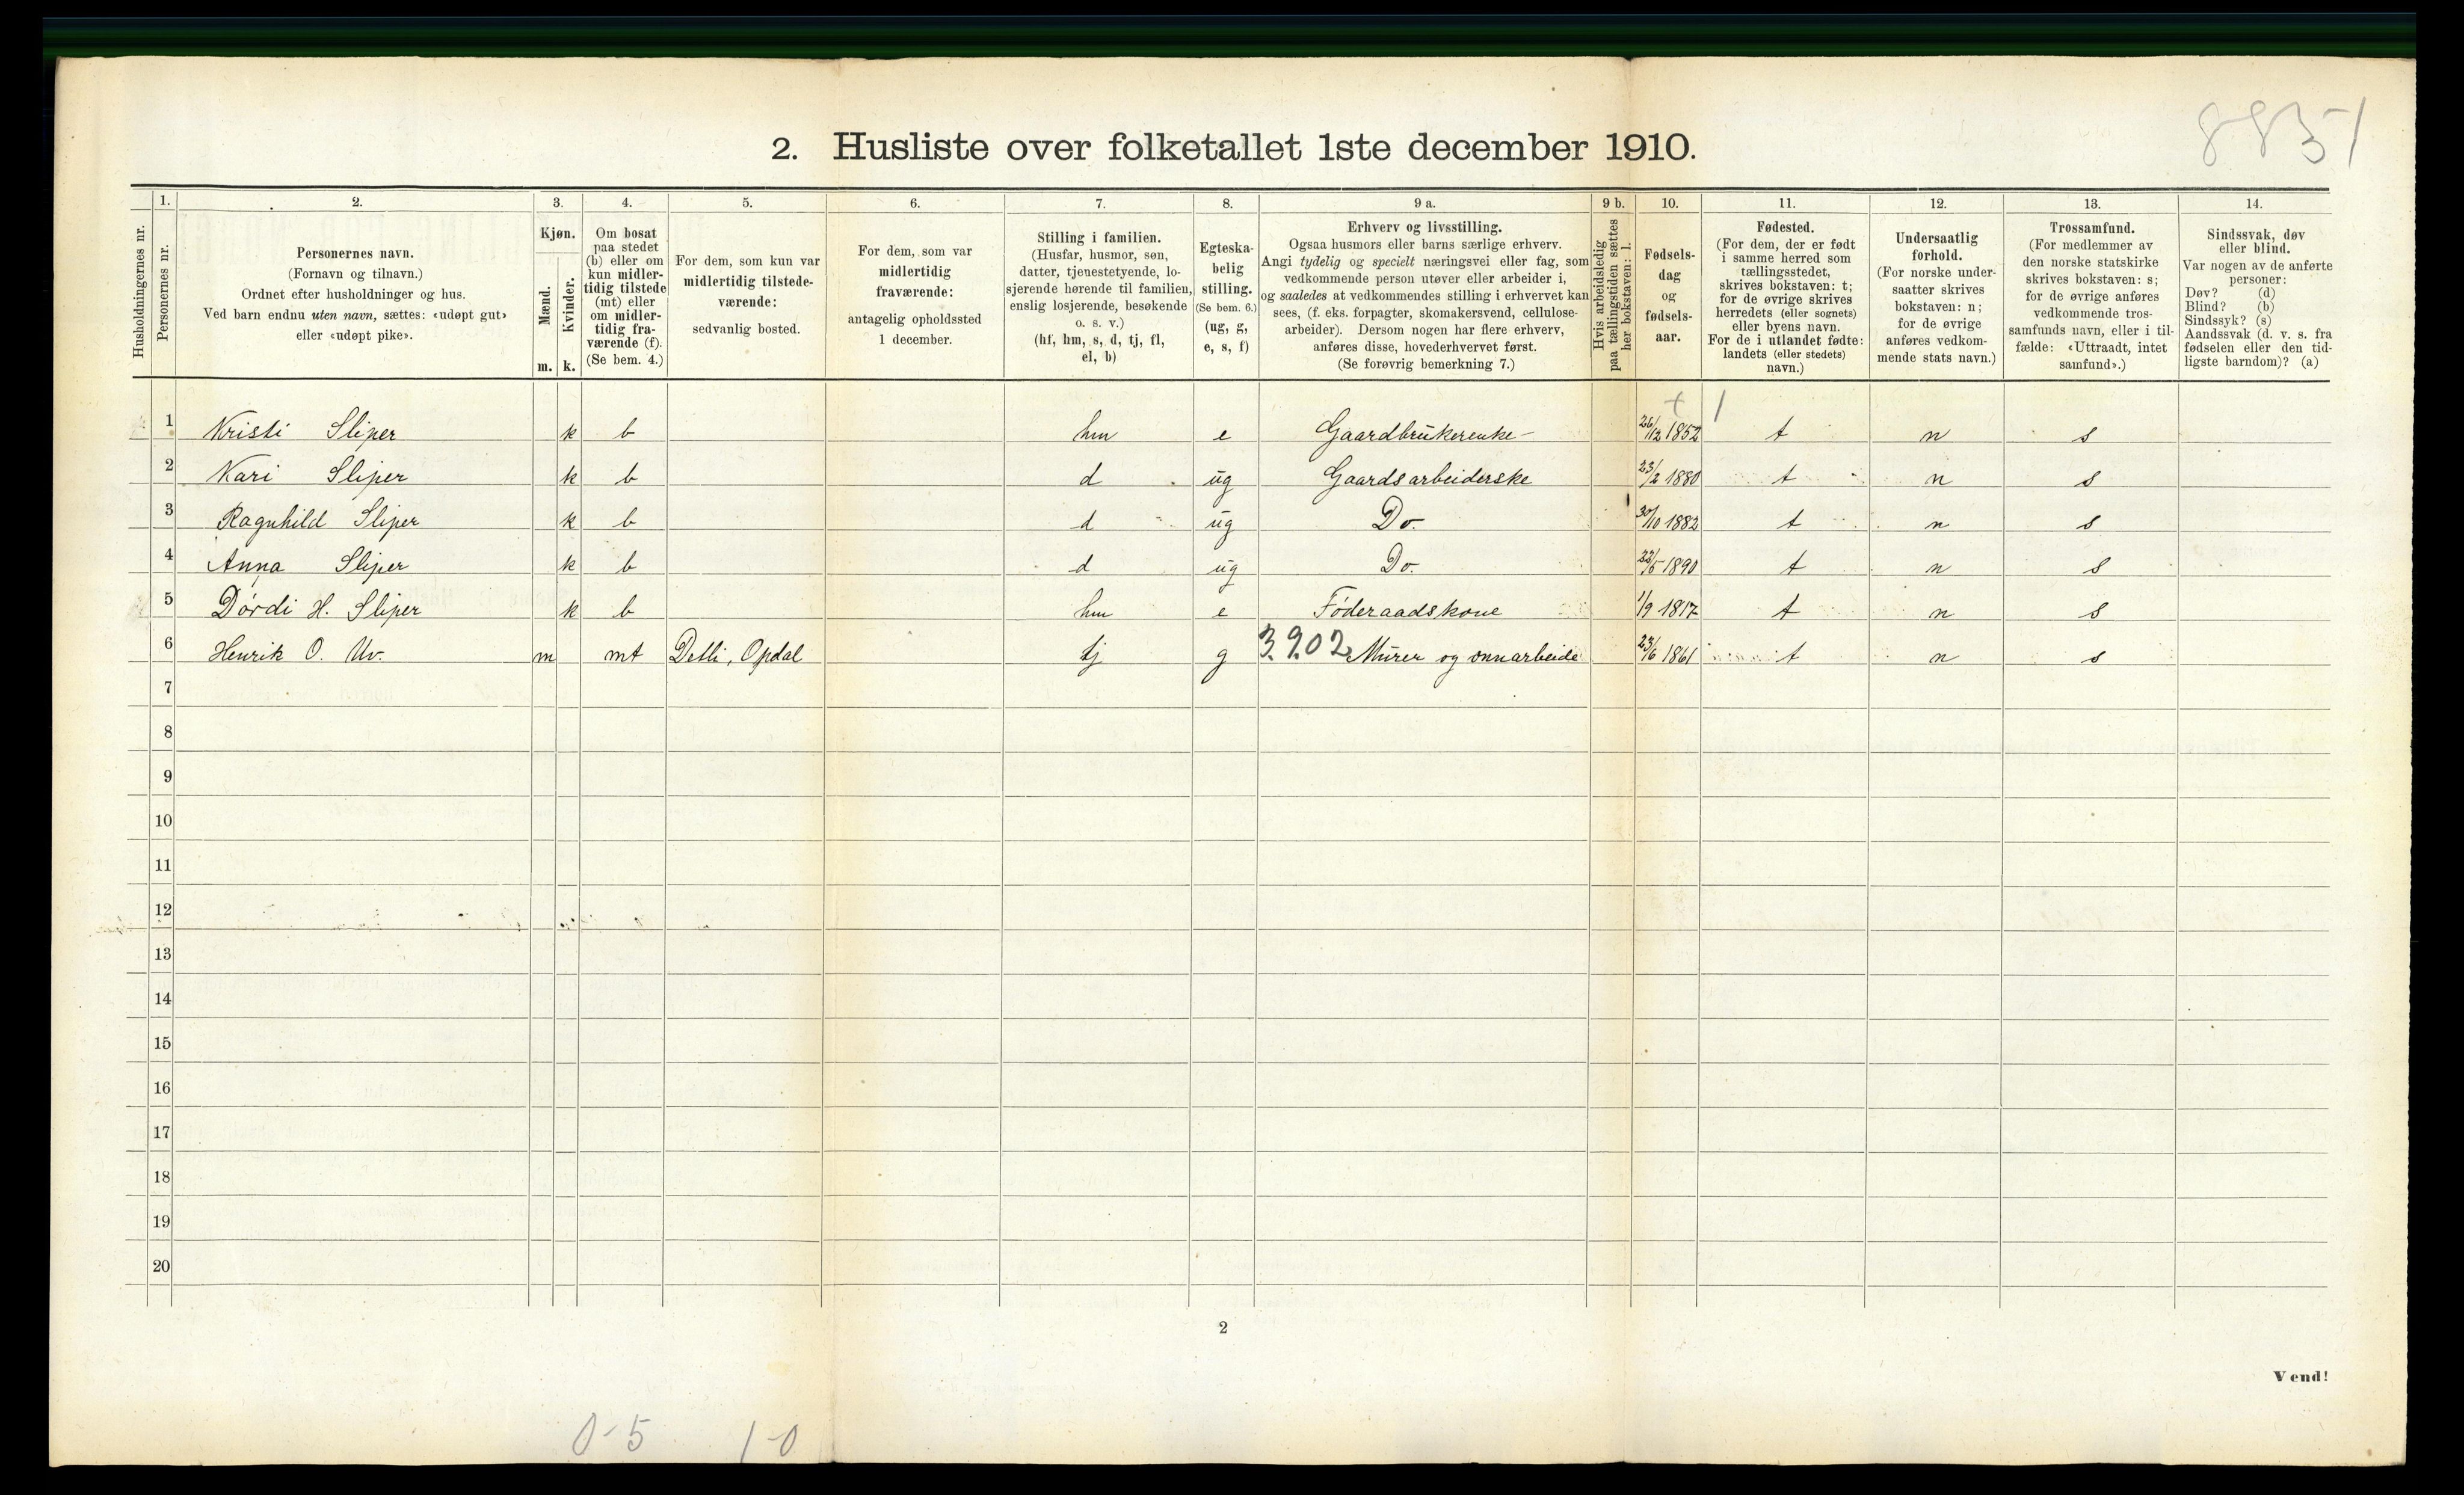 8851
2. Husliste over folketallet 1ste december 1910.
Husholdningernes nr.
1.
Personernes nr.
2.
Personernes navn.
(Fornavn og tilnavn.)
Ordnet efter husholdninger og hus.
Ved barn endnu uten navn, sættes: «udøpt gut»
eller «udøpt pike».
3.
Kjøn.
Mænd.
m.
Kvinder.
k.
4.
Om bosat
paa stedet
(b) eller om
kun midler-
tidig tilstede
(mt) eller
om midler-
tidig fra-
værende (f).
(Se bem. 4.)
5.
For dem, som kun var
midlertidig tilstede-
værende:
sedvanlig bosted.
6.
For dem, som var
midlertidig
fraværende:
antagelig opholdssted
1 december.
7.
Stilling i familien.
(Husfar, husmor, søn,
datter, tjenestetyende, lo-
sjerende hørende til familien,
enslig losjerende, besøkende
o. s. v.)
(hf, hm, s, d, tj, fl,
el, b)
8.
Egteska-
belig
stilling.
(Se bem. 6.)
(ug, g,
e, s, f)
9 a.
Erhverv og livsstilling.
Ogsaa husmors eller barns særlige erhverv.
Angi tydelig og specielt næringsvei eller fag, som
vedkommende person utøver eller arbeider i,
og saaledes at vedkommendes stilling i erhvervet kan
sees, (f. eks. forpagter, skomakersvend, cellulose-
arbeider). Dersom nogen har flere erhverv,
anføres disse, hovederhvervet først.
(Se forøvrig bemerkning 7.)
9 b.
Hvis arbeidsledig
paa tællingstiden sættes
her bokstaven: l.
10.
Fødsels-
dag
og
fødsels-
aar.
11.
Fødested.
(For dem, der er født
i samme herred som
tællingsstedet,
skrives bokstaven: t;
for de øvrige skrives
herredets (eller sognets)
eller byens navn.
For de i utlandet fødte:
landets (eller stedets)
navn.)
12.
Undersaatlig
forhold.
(For norske under-
saatter skrives
bokstaven: n;
for de øvrige
anføres vedkom-
mende stats navn.)
13.
Trossamfund.
(For medlemmer av
den norske statskirke
skrives bokstaven: s;
for de øvrige anføres
vedkommende tros-
samfunds navn, eller i til-
fælde: «Uttraadt, intet
samfund».)
14.
Sindssvak, døv
eller blind.
Var nogen av de anførte
personer:
Døv? (d)
Blind? (b)
Sindssyk? (s)
Aandssvak (d. v. s. fra
fødselen eller den tid-
ligste barndom)? (a)
1 Kristi Sliper k b hm e Gaardbrukerenke- 26/12 1852 t n s
2 Kari Sliper k b d ug Gaardsarbeiderske 23/2 1880 t n s
3 Ragnhild Sliper k b d ug Do. 30/10 1882 t n s
4 Anna Sliper k b d ug Do. 22/5 1890 t n s
5 Dórdi H. Sliper k b hm e Føderaadskone 1/9 1817 t n s
6 Henrik O. Uv. m mt Detli, Opdal tj g 3.9.02 Murer og onnarbeide 23/6 1861 t n s
7
8
9
10
11
12
13
14
15
16
17
18
19
20
2
Vend!
0-5 1-0